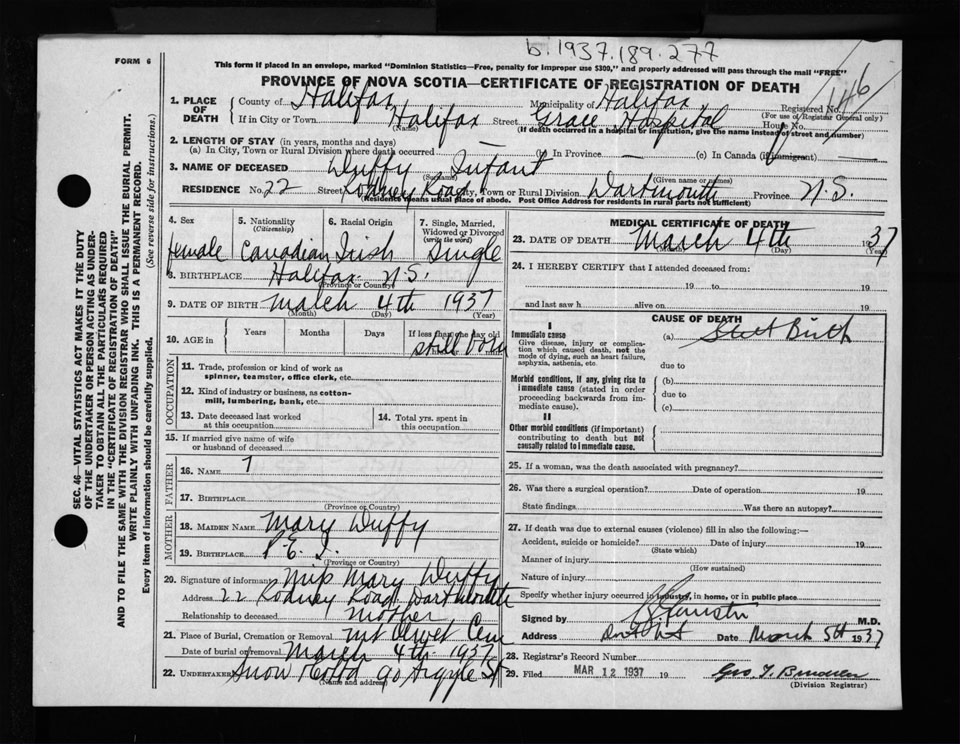 b. 1937.189.277
FORM 6
This form if placed in an envelope, marked "Dominion Statistics—Free, penalty for improper use $300," and properly addressed will pass through the mail "FREE"
PROVINCE OF NOVA SCOTIA—CERTIFICATE OF REGISTRATION OF DEATH
146
1. PLACE OF DEATH
County of Halifax Municipality of Halifax Registered No.
(For use of Registrar General only)
If in City or Town Halifax Street Grace Hospital House No.
(Name) (If death occurred in a hospital or institution, give the name instead of street and number)
2. LENGTH OF STAY (in years, months and days)
(a) In City, Town or Rural Division where death occurred (b) In Province — (c) In Canada (if immigrant) —
3. NAME OF DECEASED Duffy Infant
(Surname) (Given name or names)
RESIDENCE No. 22 Street Rodney Road City, Town or Rural Division Dartmouth Province N.S.
(Residence means usual place of abode. Post Office Address for residents in rural parts not sufficient)
4. Sex 5. Nationality 6. Racial Origin 7. Single, Married,
(Citizenship) Widowed or Divorced
(write the word)
female Canadian Irish Single
8. BIRTHPLACE Halifax N.S.
(Province or Country)
9. DATE OF BIRTH March 4th 1937
(Month) (Day) (Year)
10. AGE in Years Months Days If less than one day old
still born
OCCUPATION
11. Trade, profession or kind of work as
spinner, teamster, office clerk, etc.
12. Kind of industry or business, as cotton-
mill, lumbering, bank, etc.
13. Date deceased last worked
at this occupation
14. Total yrs. spent in
this occupation
15. If married give name of wife
or husband of deceased
FATHER
16. NAME
17. BIRTHPLACE
(Province or Country)
MOTHER
18. MAIDEN NAME Mary Duffy
19. BIRTHPLACE P.E.I.
(Province or Country)
20. Signature of informant Miss Mary Duffy
Address 22 Rodney Road Dartmouth
Relationship to deceased mother
21. Place of Burial, Cremation or Removal Mt Olivet Cem
Date of burial or removal March 4th 1937
22. UNDERTAKER Snow & Co Ltd 90 Argyle St
(Name and address)
MEDICAL CERTIFICATE OF DEATH
23. DATE OF DEATH March 4th 1937
(Month) (Day) (Year)
24. I HEREBY CERTIFY that I attended deceased from:
19 to 19
and last saw h alive on 19
CAUSE OF DEATH
I
Immediate cause
Give disease, injury or complica-
tion which caused death, not the
mode of dying, such as heart failure,
asphyxia, asthenia, etc.
(a) Still Birth
due to
Morbid conditions, if any, giving rise to
immediate cause (stated in order
proceeding backwards from im-
mediate cause).
(b)
due to
(c)
II
Other morbid conditions (if important)
contributing to death but not
causally related to immediate cause.
25. If a woman, was the death associated with pregnancy?
26. Was there a surgical operation? Date of operation 19
State findings Was there an autopsy?
27. If death was due to external causes (violence) fill in also the following:—
Accident, suicide or homicide? Date of injury 19
(State which)
Manner of injury
(How sustained)
Nature of injury
Specify whether injury occurred in industry, in home, or in public place
Signed by M.D.
Address Date March 5th 1937
28. Registrar's Record Number
29. Filed MAR 12 1937 19
(Division Registrar)
SEC. 46—VITAL STATISTICS ACT MAKES IT THE DUTY
OF THE UNDERTAKER OR PERSON ACTING AS UNDER-
TAKER TO OBTAIN ALL THE PARTICULARS REQUIRED
IN THE "CERTIFICATE OF REGISTRATION OF DEATH"
AND TO FILE THE SAME WITH THE DIVISION REGISTRAR WHO SHALL ISSUE THE BURIAL PERMIT.
WRITE PLAINLY WITH UNFADING INK. THIS IS A PERMANENT RECORD.
Every item of information should be carefully supplied. (See reverse side for instructions.)